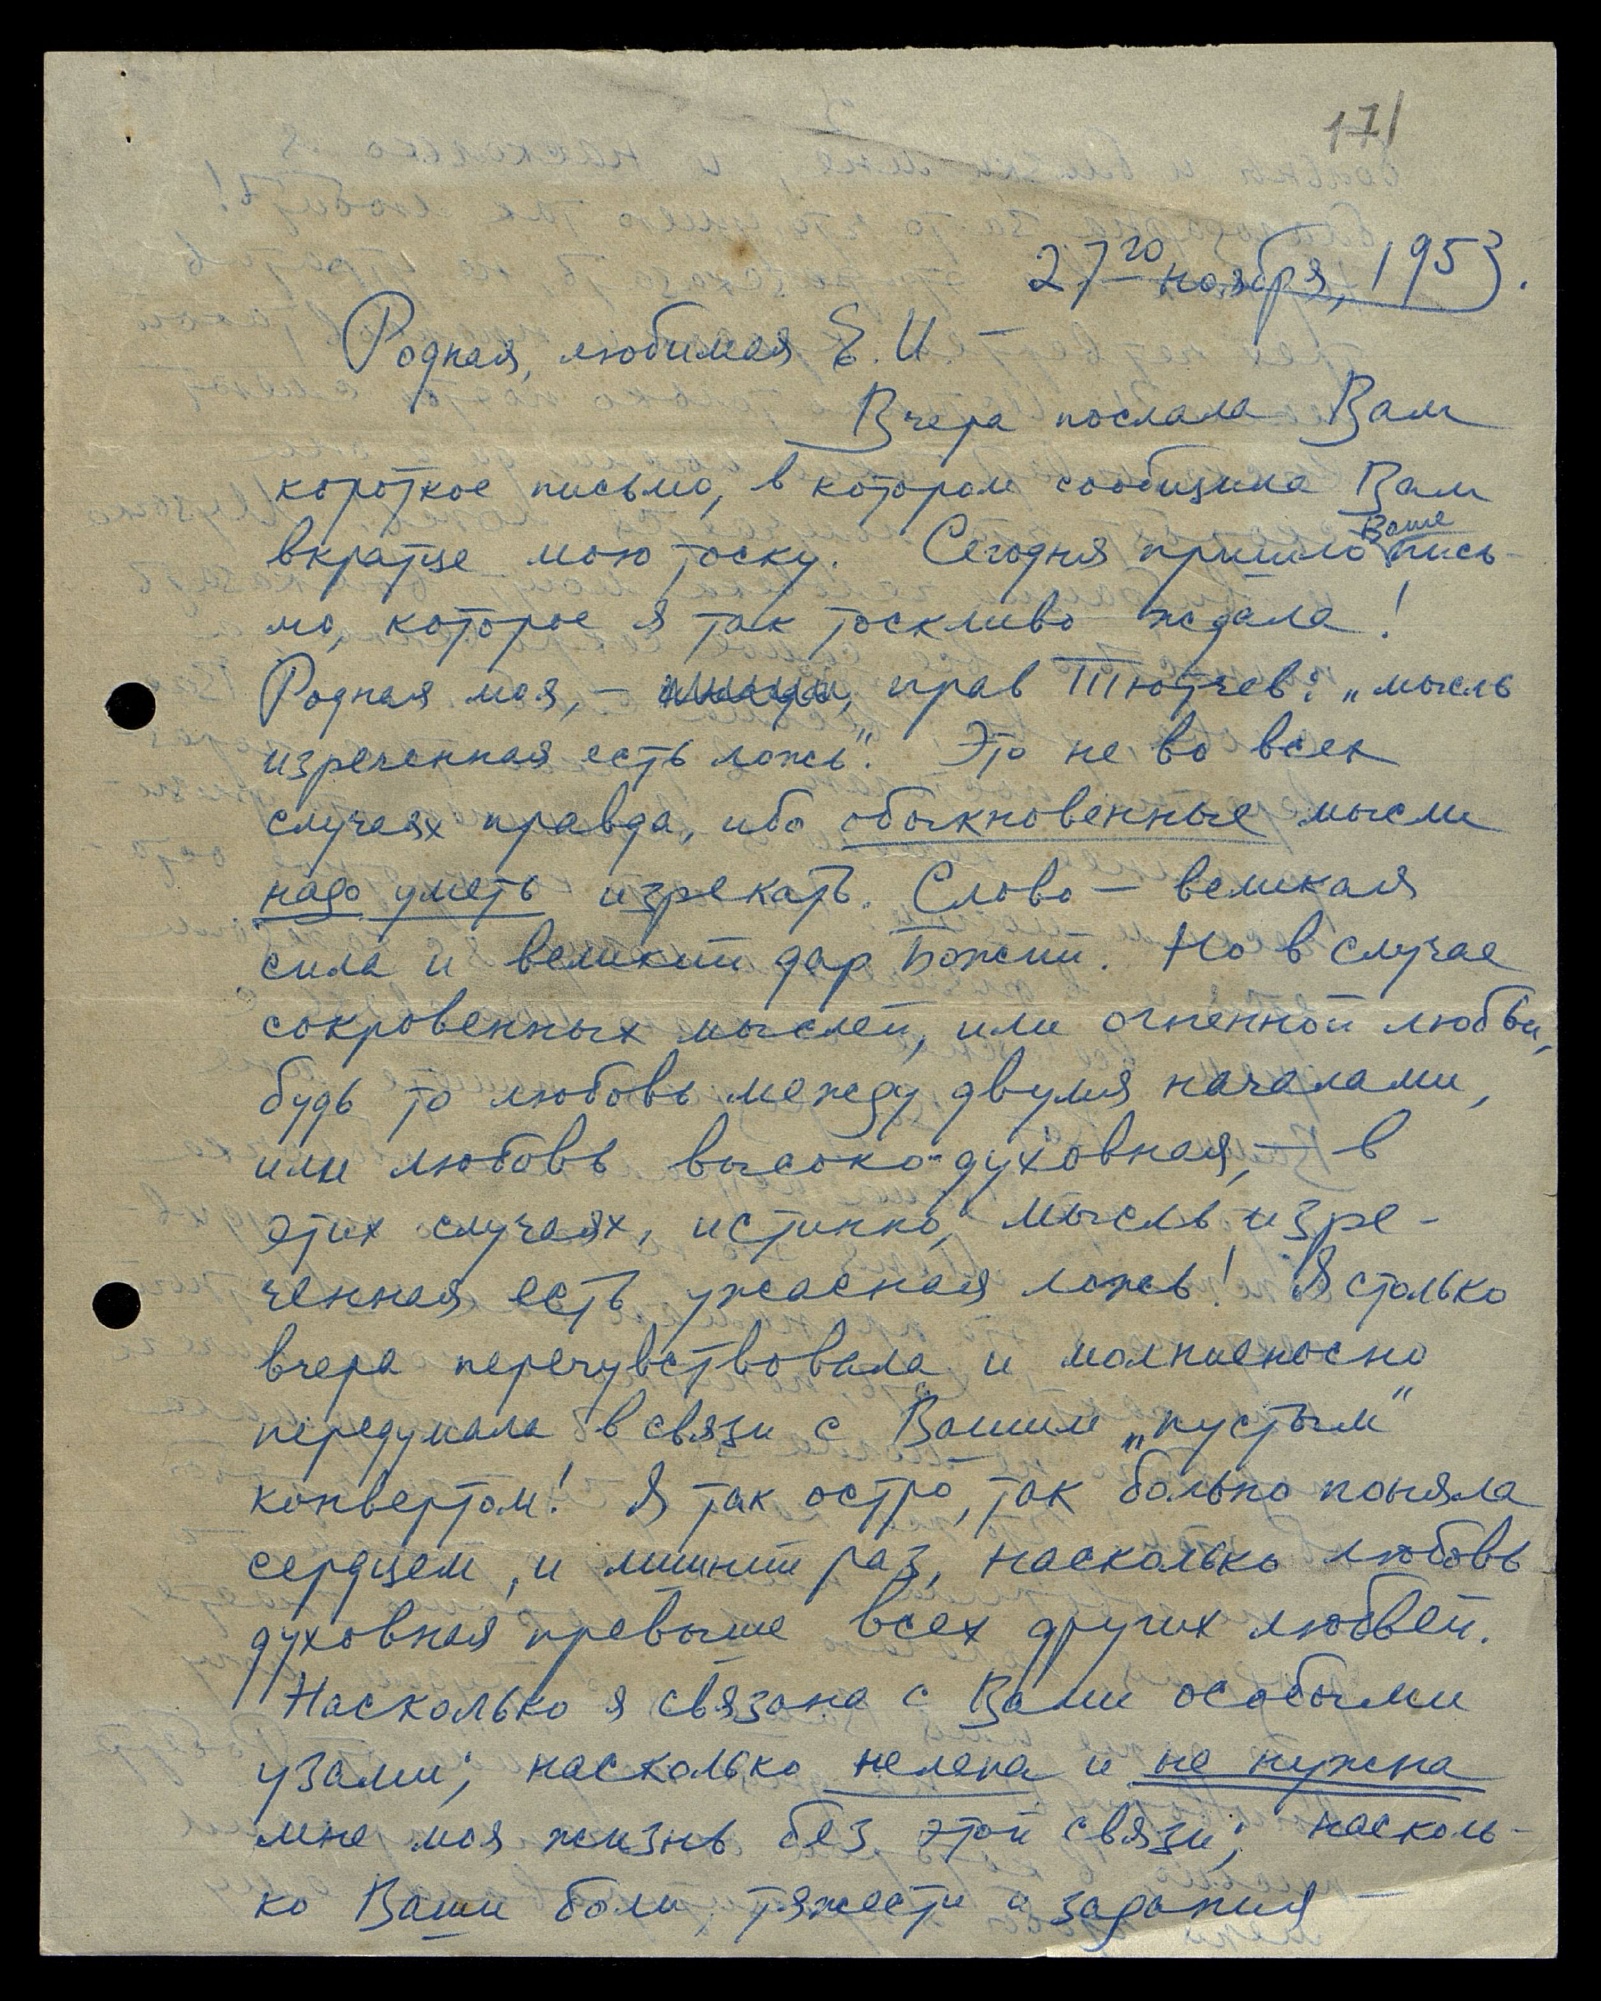 171
27го ноября, 1953.
Родная, любимая Е. И. —
Вчера послала Вам
короткое письмо, в котором сообщила Вам
вкратце мою тоску. Сегодня пришло Ваше пись-
мо, которое я так тоскливо ждала!
Родная моя, — прав Тютчев: „мысль
изреченная есть ложь". Это не во всех
случаях правда, ибо обыкновенные мысли
надо уметь изрекать. Слово — великая
сила и великий дар Божий. Но в случае
сокровенных мыслей, или огненной любви,
будь то любовь между двумя началами,
или любовь высоко-духовная, — в
этих случаях, истинно, мысль изре-
ченная есть ужасная ложь! Я столько
вчера перечувствовала и молниеносно
передумала в связи с Вашим „пустым"
конвертом! Я так остро, так больно поняла
сердцем, и лишний раз, насколько любовь
духовная превыше всех других любвей.
Насколько я связана с Вами особыми
узами; насколько нелепа и не нужна
мне моя жизнь без этой связи; насколь-
ко Ваши боли, тяжести и задания —